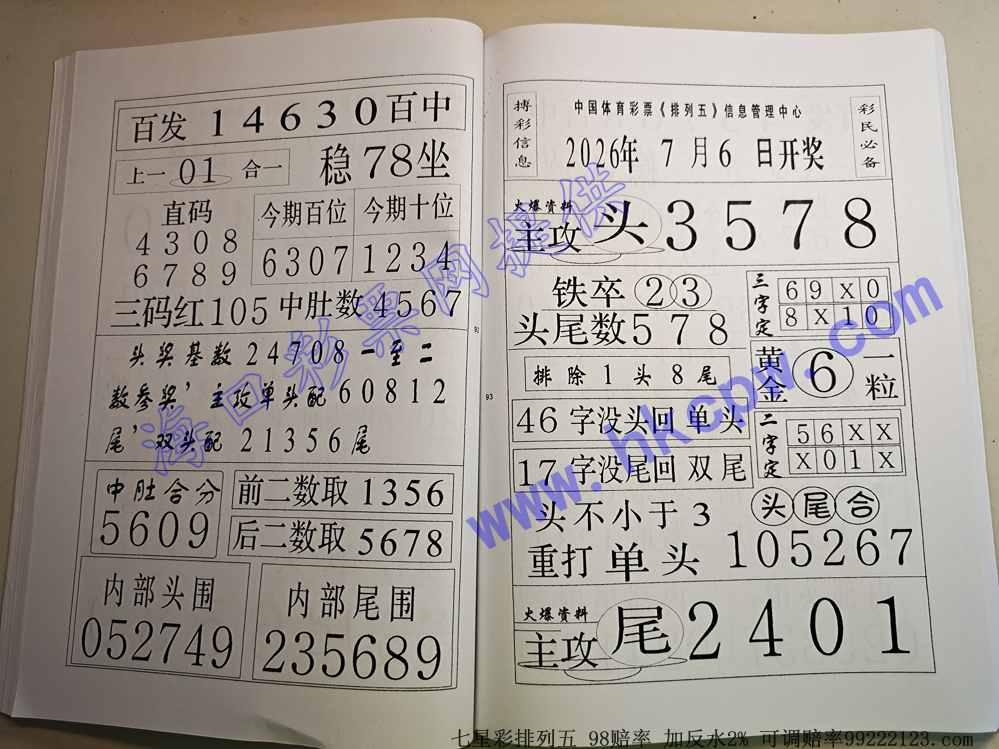 百发 14630 百中
上一 01 合一
稳78坐
直码
4308
6789
今期百位
6307
今期十位
1234
三码红105中肚数4567
头奖基数24708一至二
数参奖’主攻单头配60812
尾’双头配21356尾
中肚合分
5609
前二数取 1356
后二数取 5678
内部头围
052749
内部尾围
235689
92
93
搏彩信息
中国体育彩票《排列五》信息管理中心
2026年 7月6 日开奖
彩民必备
火爆资料
主攻 头 3578
铁卒 23
头尾数578
排除1头8尾
三字定
69X0
8X10
黄金 6 一粒
46字没头回单头
17字没尾回双尾
二字定
56XX
X01X
头不小于3
头尾合
重打单头 105267
火爆资料
主攻 尾 2401
海口彩票网提供
www.hkcpw.com
七星彩排列五 98赔率 加反水2% 可调赔率99222123.com